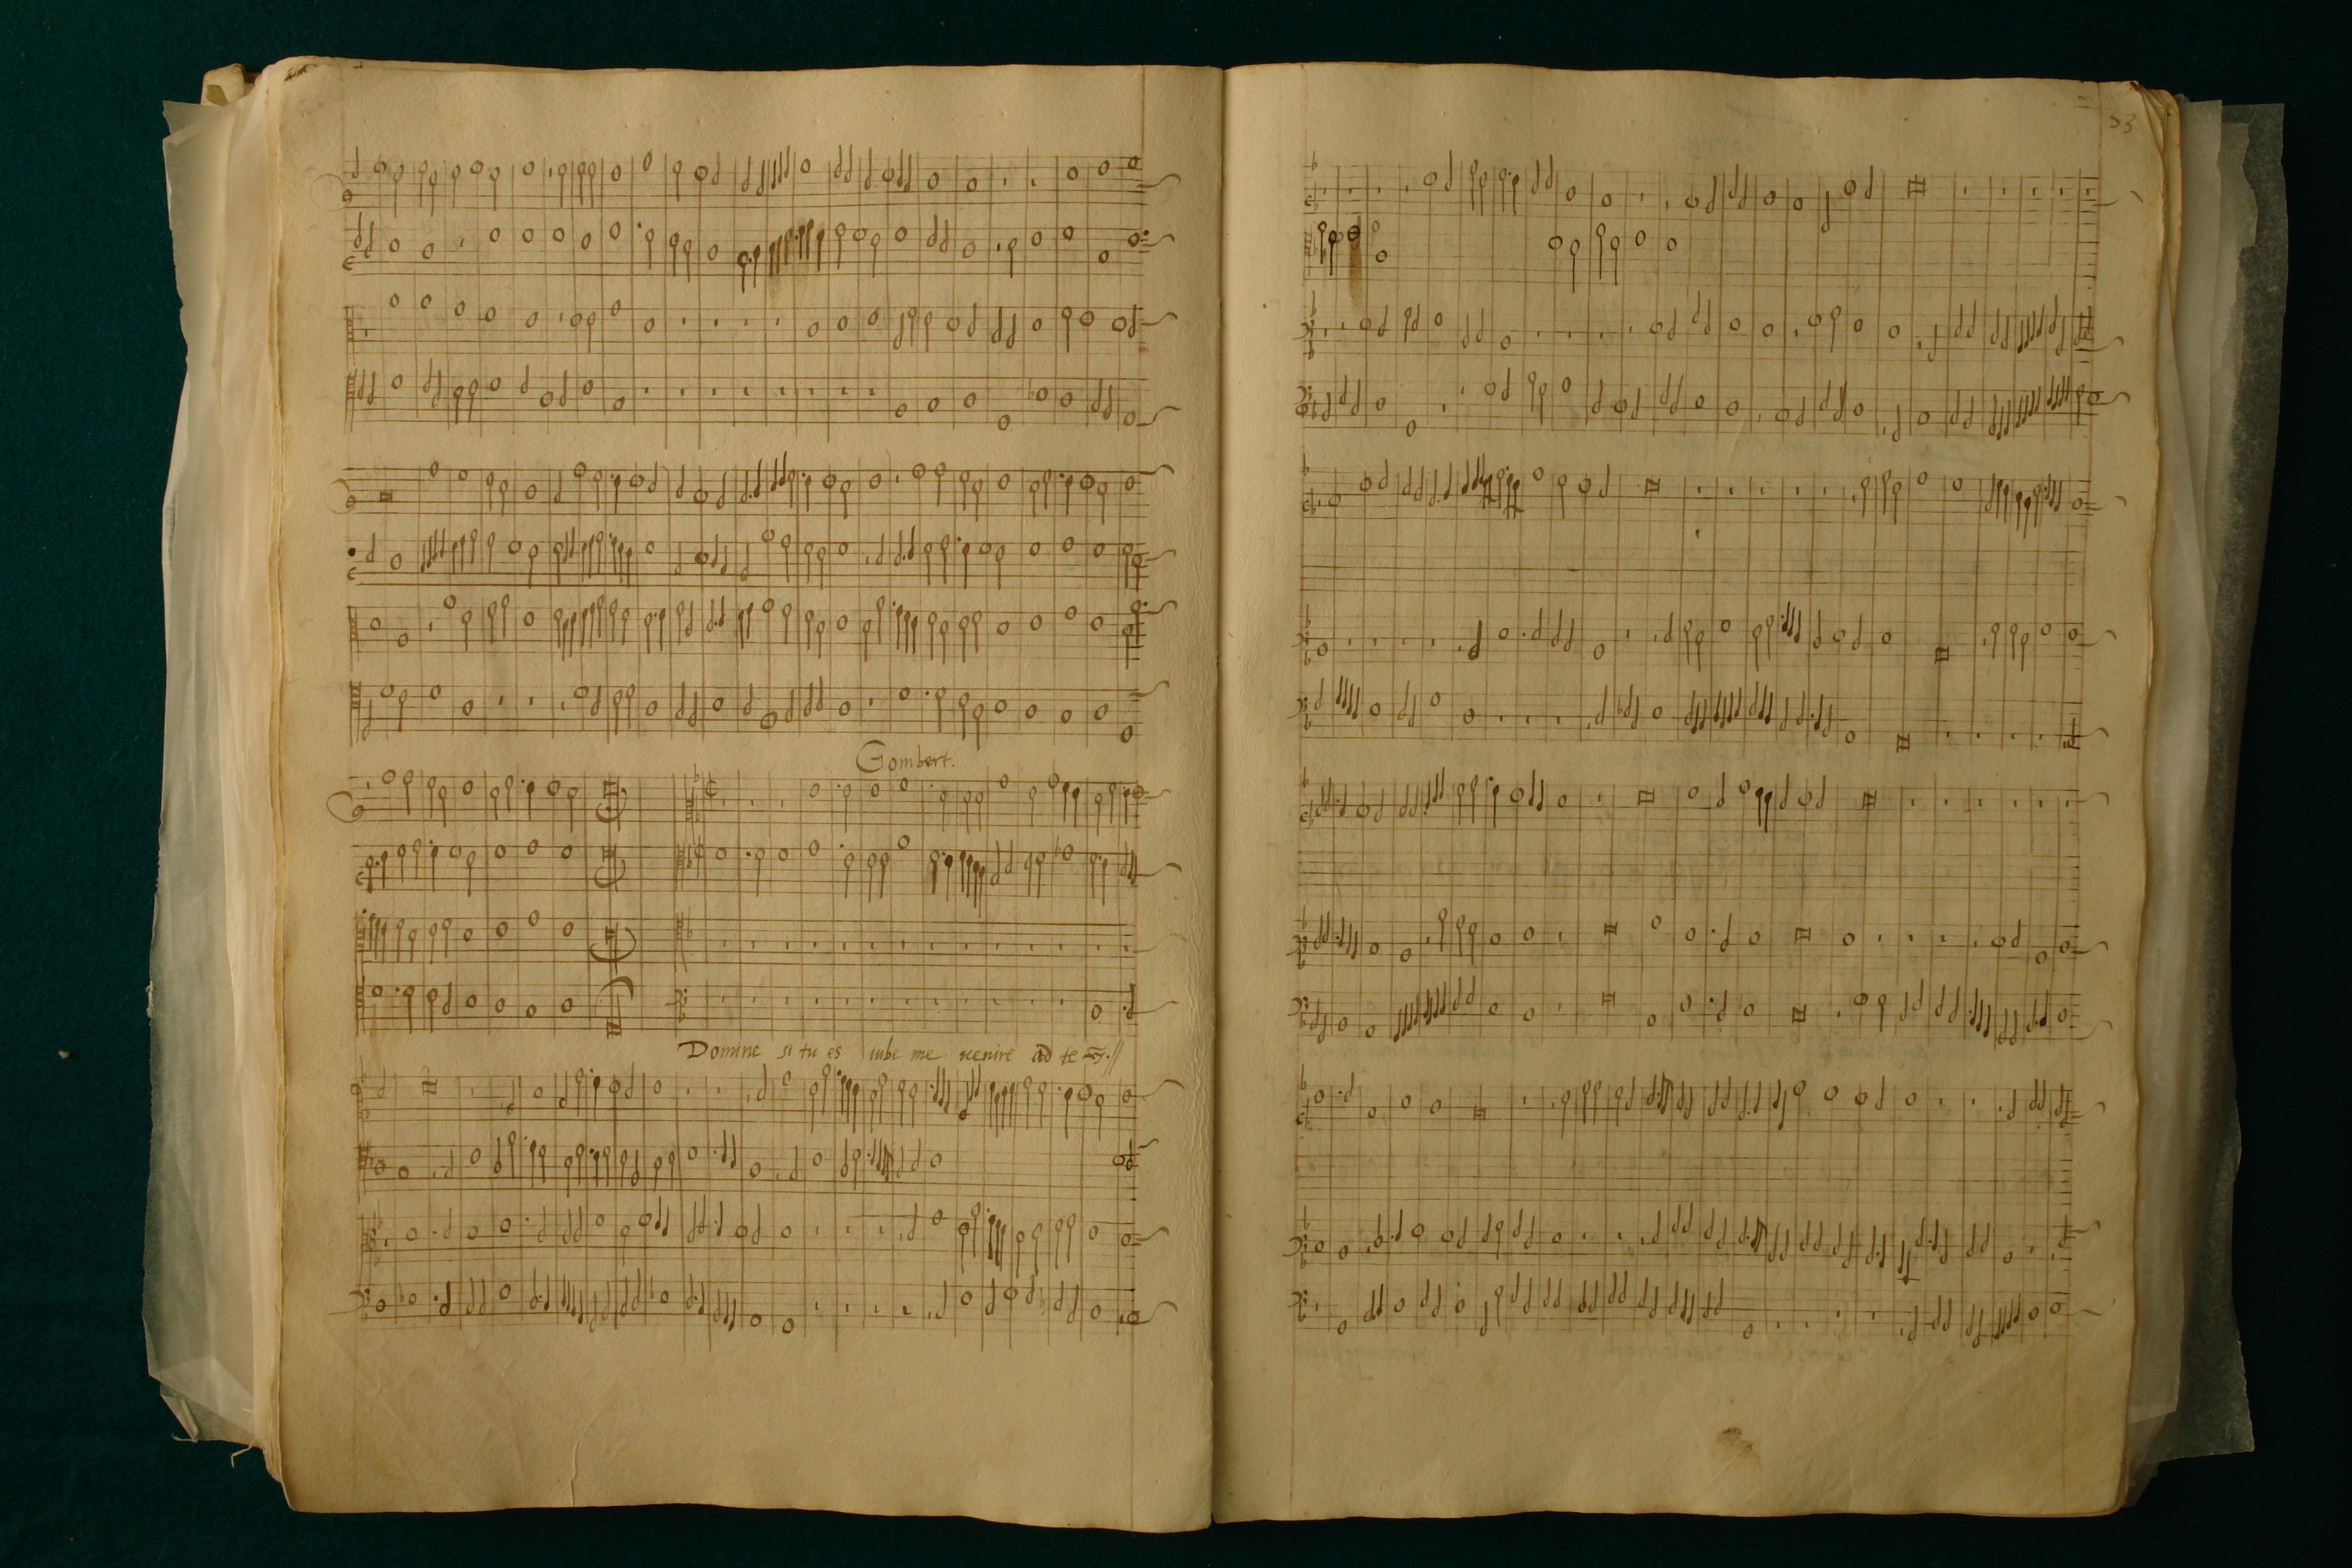 53
Gombert.
Domine si tu es iube me uenire ad te